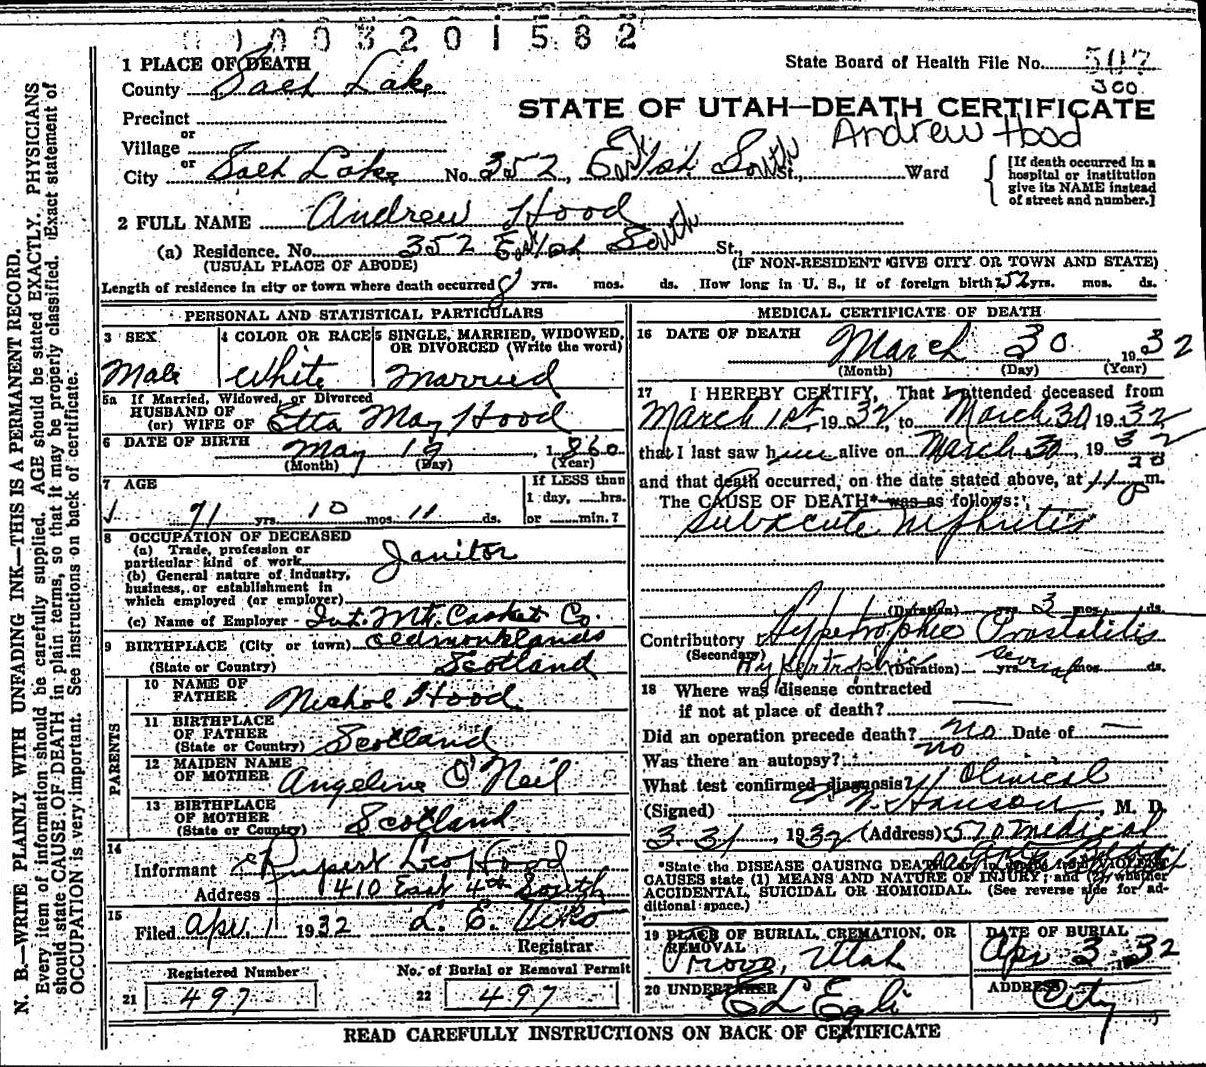 1003201582
State Board of Health File No. 507
300
STATE OF UTAH—DEATH CERTIFICATE
Andrew Hood
1 PLACE OF DEATH
County Salt Lake
Precinct
or
Village
or
City Salt Lake No. 352, East South St., Ward
[If death occurred in a
hospital or institution
give its NAME instead
of street and number.]
2 FULL NAME Andrew Hood
(a) Residence. No. 352 East South St.,
(USUAL PLACE OF ABODE) (IF NON-RESIDENT GIVE CITY OR TOWN AND STATE)
Length of residence in city or town where death occurred yrs. mos. ds. How long in U. S., if of foreign birth? 52 yrs. mos. ds.
PERSONAL AND STATISTICAL PARTICULARS
3 SEX
Male
4 COLOR OR RACE
White
5 SINGLE, MARRIED, WIDOWED,
OR DIVORCED (Write the word)
Married
5a If Married, Widowed, or Divorced
HUSBAND OF
(or) WIFE OF Etta May Hood
6 DATE OF BIRTH May 19, 1860
(Month) (Day) (Year)
7 AGE
71 yrs. 10 mos. 11 ds.
If LESS than
1 day, hrs.
or min.?
8 OCCUPATION OF DECEASED
(a) Trade, profession or
particular kind of work Janitor
(b) General nature of industry,
business, or establishment in
which employed (or employer)
(c) Name of Employer Int. Mt. Casket Co.
9 BIRTHPLACE (City or town) Oldmonklands
(State or Country) Scotland
PARENTS
10 NAME OF
FATHER Nichol Hood
11 BIRTHPLACE
OF FATHER
(State or Country) Scotland
12 MAIDEN NAME
OF MOTHER Angeline O'Neil
13 BIRTHPLACE
OF MOTHER
(State or Country) Scotland
14
Informant Rupert Leo Hood
Address 1410 East 4th South
15
Filed Apr 1 1932 L. E.
Registrar
Registered Number
21 497
No. of Burial or Removal Permit
22 497
MEDICAL CERTIFICATE OF DEATH
16 DATE OF DEATH
March 30, 1932
(Month) (Day) (Year)
17 I HEREBY CERTIFY, That I attended deceased from
March 1st, 1932, to March 30 1932
that I last saw him alive on March 30, 1932
and that death occurred, on the date stated above, at 11 20 p m.
The CAUSE OF DEATH* was as follows:
Subacute Nephritis
(Duration) yrs. 3 mos. ds.
Contributory Hypertrophic Prostatitis
(Secondary)
(Duration) yrs. several mos. ds.
18 Where was disease contracted
if not at place of death? —
Did an operation precede death? No Date of —
Was there an autopsy? No
What test confirmed diagnosis? Clinical
(Signed) Hanson, M. D.
3-31, 1932 (Address) 570 Medical
*State the DISEASE CAUSING DEATH, or in deaths from VIOLENT
CAUSES state (1) MEANS AND NATURE OF INJURY; and (2) whether
ACCIDENTAL, SUICIDAL OR HOMICIDAL. (See reverse side for ad-
ditional space.)
19 PLACE OF BURIAL, CREMATION, OR
REMOVAL
Provo, Utah
DATE OF BURIAL
Apr 3 1932
20 UNDERTAKER
E L Egli
ADDRESS
City
READ CAREFULLY INSTRUCTIONS ON BACK OF CERTIFICATE
N. B.—WRITE PLAINLY WITH UNFADING INK—THIS IS A PERMANENT RECORD.
Every item of information should be carefully supplied. AGE should be stated EXACTLY. PHYSICIANS
should state CAUSE OF DEATH in plain terms, so that it may be properly classified. Exact statement of
OCCUPATION is very important. See instructions on back of certificate.